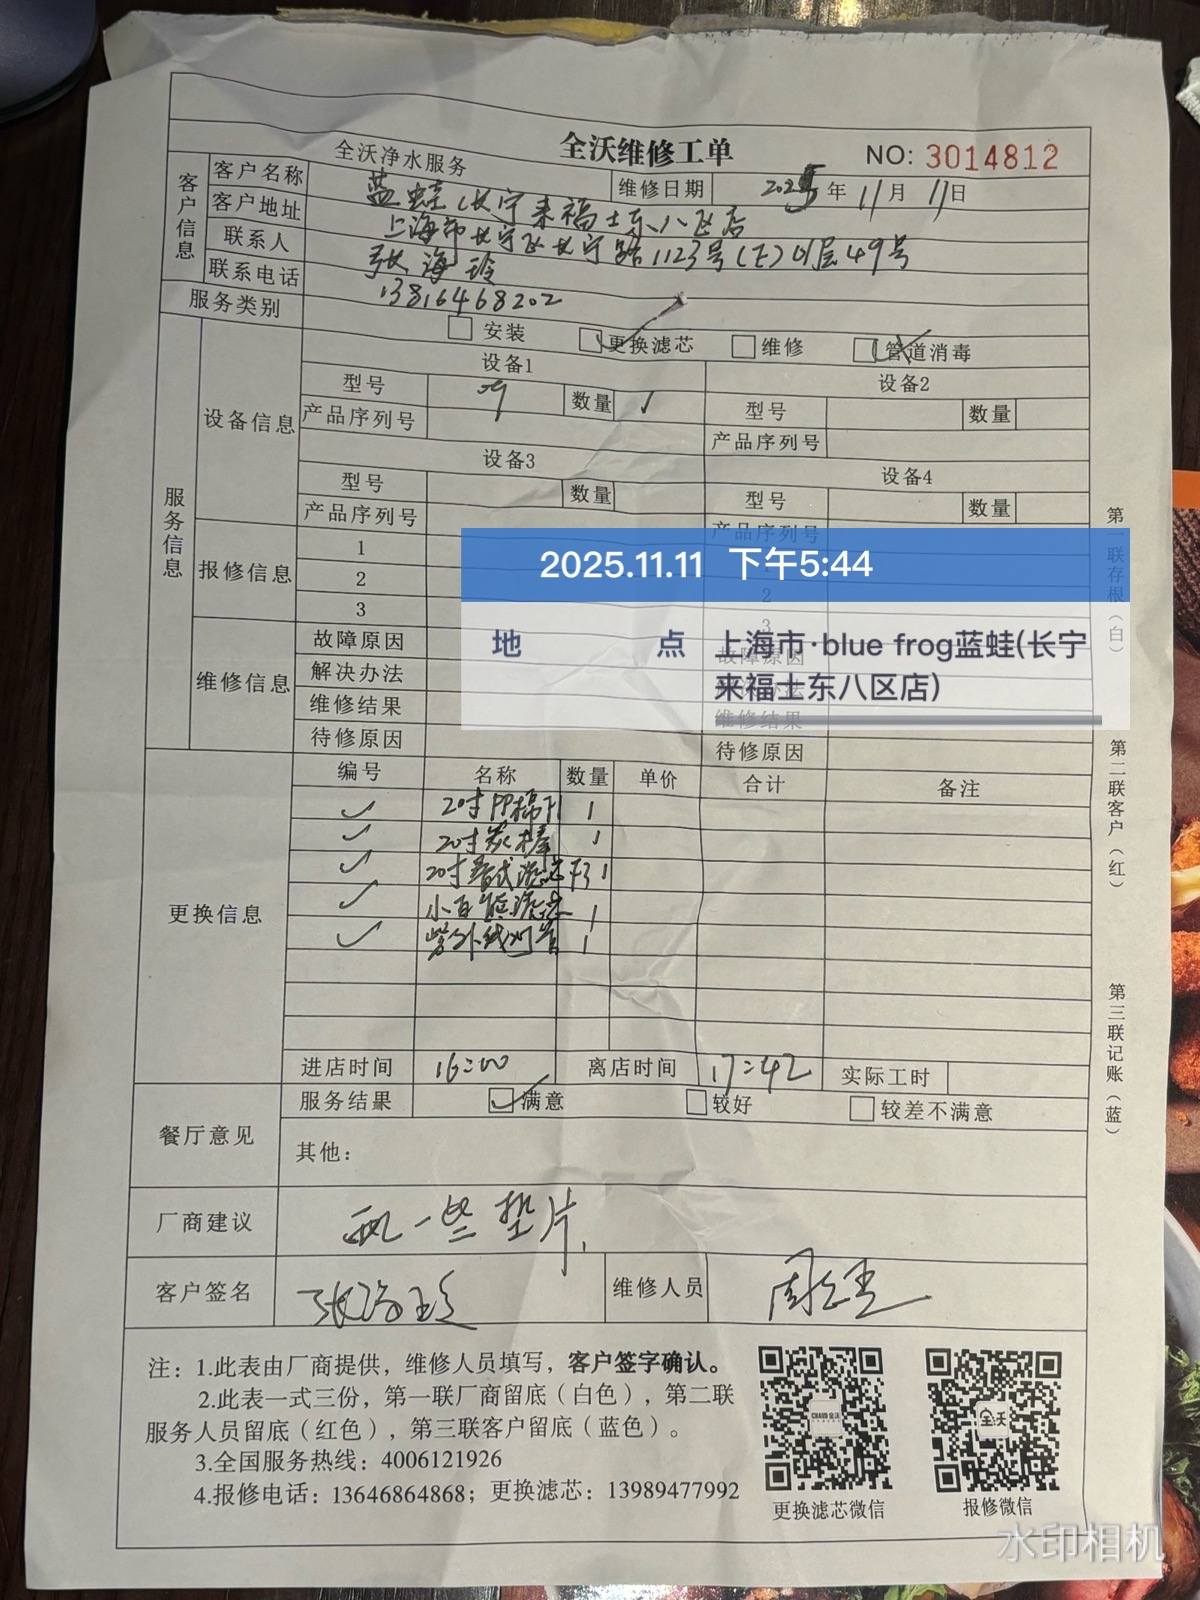 全沃维修工单
全沃净水服务
NO: 3014812
客户信息
客户名称 蓝蛙(长宁来福士东八区店
维修日期 2025年11月11日
客户地址 上海市长宁区长宁路1123号(E)01层49号
联系人 张海玲
联系电话 13816468202
服务类别 安装 更换滤芯 维修 管道消毒
服务信息
设备信息
设备1 设备2
型号 数量 1 型号 数量
产品序列号 产品序列号
设备3 设备4
型号 数量 型号 数量
产品序列号 产品序列号
报修信息
1
2 2
3 3
维修信息
故障原因 故障原因
解决办法 解决办法
维修结果 维修结果
待修原因 待修原因
2025.11.11 下午5:44
地点 上海市·blue frog蓝蛙(长宁
来福士东八区店)
更换信息
编号 名称 数量 单价 合计 备注
✓ 20寸PP棉F1 1
✓ 20寸炭棒 1
✓ 20寸 滤芯F3 1
✓ 小白 滤芯 1
✓ 紫外线灯管 1
进店时间 16:00 离店时间 17:42 实际工时
餐厅意见
服务结果 满意 较好 较差不满意
其他：
厂商建议 一些垫片
客户签名 张海玲 维修人员
注：1.此表由厂商提供，维修人员填写，客户签字确认。
2.此表一式三份，第一联厂商留底（白色），第二联
服务人员留底（红色），第三联客户留底（蓝色）。
3.全国服务热线：4006121926
4.报修电话：13646864868；更换滤芯：13989477992
更换滤芯微信
全沃
报修微信
第一联存根（白）
第二联客户（红）
第三联记账（蓝）
水印相机